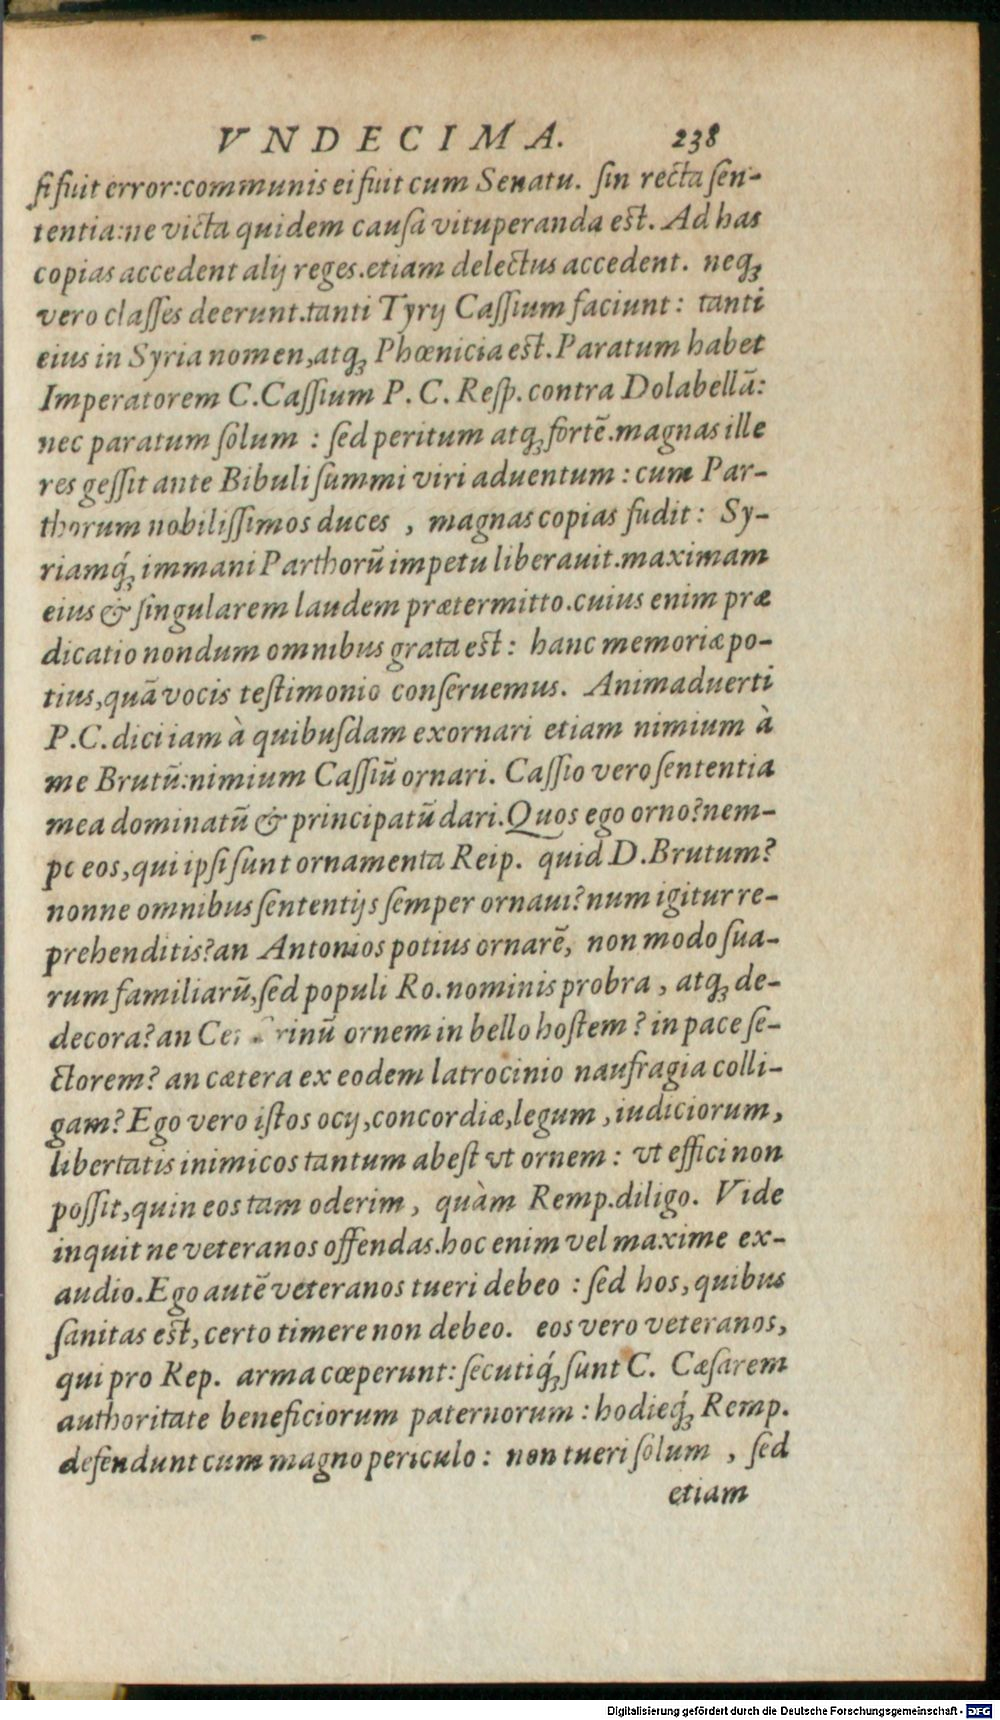 VNDECIMA. 238
si fuit error:communis ei fuit cum Senatu. sin recta sen-
tentia:ne victa quidem causa vituperanda est. Ad has
copias accedent alij reges.etiam delectus accedent. neq;
vero classes deerunt.tanti Tyrij Cassium faciunt: tanti
eius in Syria nomen,atq; Phœnicia est.Paratum habet
Imperatorem C.Cassium P. C. Resp. contra Dolabellā:
nec paratum solum : sed peritum atq; fortē.magnas ille
res gessit ante Bibuli summi viri aduentum : cum Par-
thorum nobilissimos duces , magnas copias fudit: Sy-
riamq́; immani Parthorū impetu liberauit.maximam
eius & singularem laudem prætermitto.cuius enim præ
dicatio nondum omnibus grata est: hanc memoriæ po-
tius,quā vocis testimonio conseruemus. Animaduerti
P.C.dici iam à quibusdam exornari etiam nimium à
me Brutū:nimium Cassiū ornari. Cassio vero sententia
mea dominatū & principatū dari.Quos ego orno?nem-
pe eos,qui ipsi sunt ornamenta Reip. quid D.Brutum?
nonne omnibus sententijs semper ornaui?num igitur re-
prehenditis?an Antonios potius ornarē, non modo sua-
rum familiarū,sed populi Ro.nominis probra , atq; de-
decora?an ornem in bello hostem ? in pace se-
ctorem? an cætera ex eodem latrocinio naufragia colli-
gam? Ego vero istos ocij,concordiæ,legum ,iudiciorum,
libertatis inimicos tantum abest vt ornem : vt effici non
possit,quin eos tam oderim , quàm Remp.diligo. Vide
inquit ne veteranos offendas.hoc enim vel maxime ex-
audio.Ego autē veteranos tueri debeo : sed hos,quibus
sanitas est,certo timere non debeo. eos vero veteranos,
qui pro Rep. arma cœperunt:secutiq́; sunt C. Cæsarem
authoritate beneficiorum paternorum : hodieq́; Remp.
defendunt cum magno periculo : non tueri solum , sed
etiam
Digitalisierung gefördert durch die Deutsche Forschungsgemeinschaft - DFG